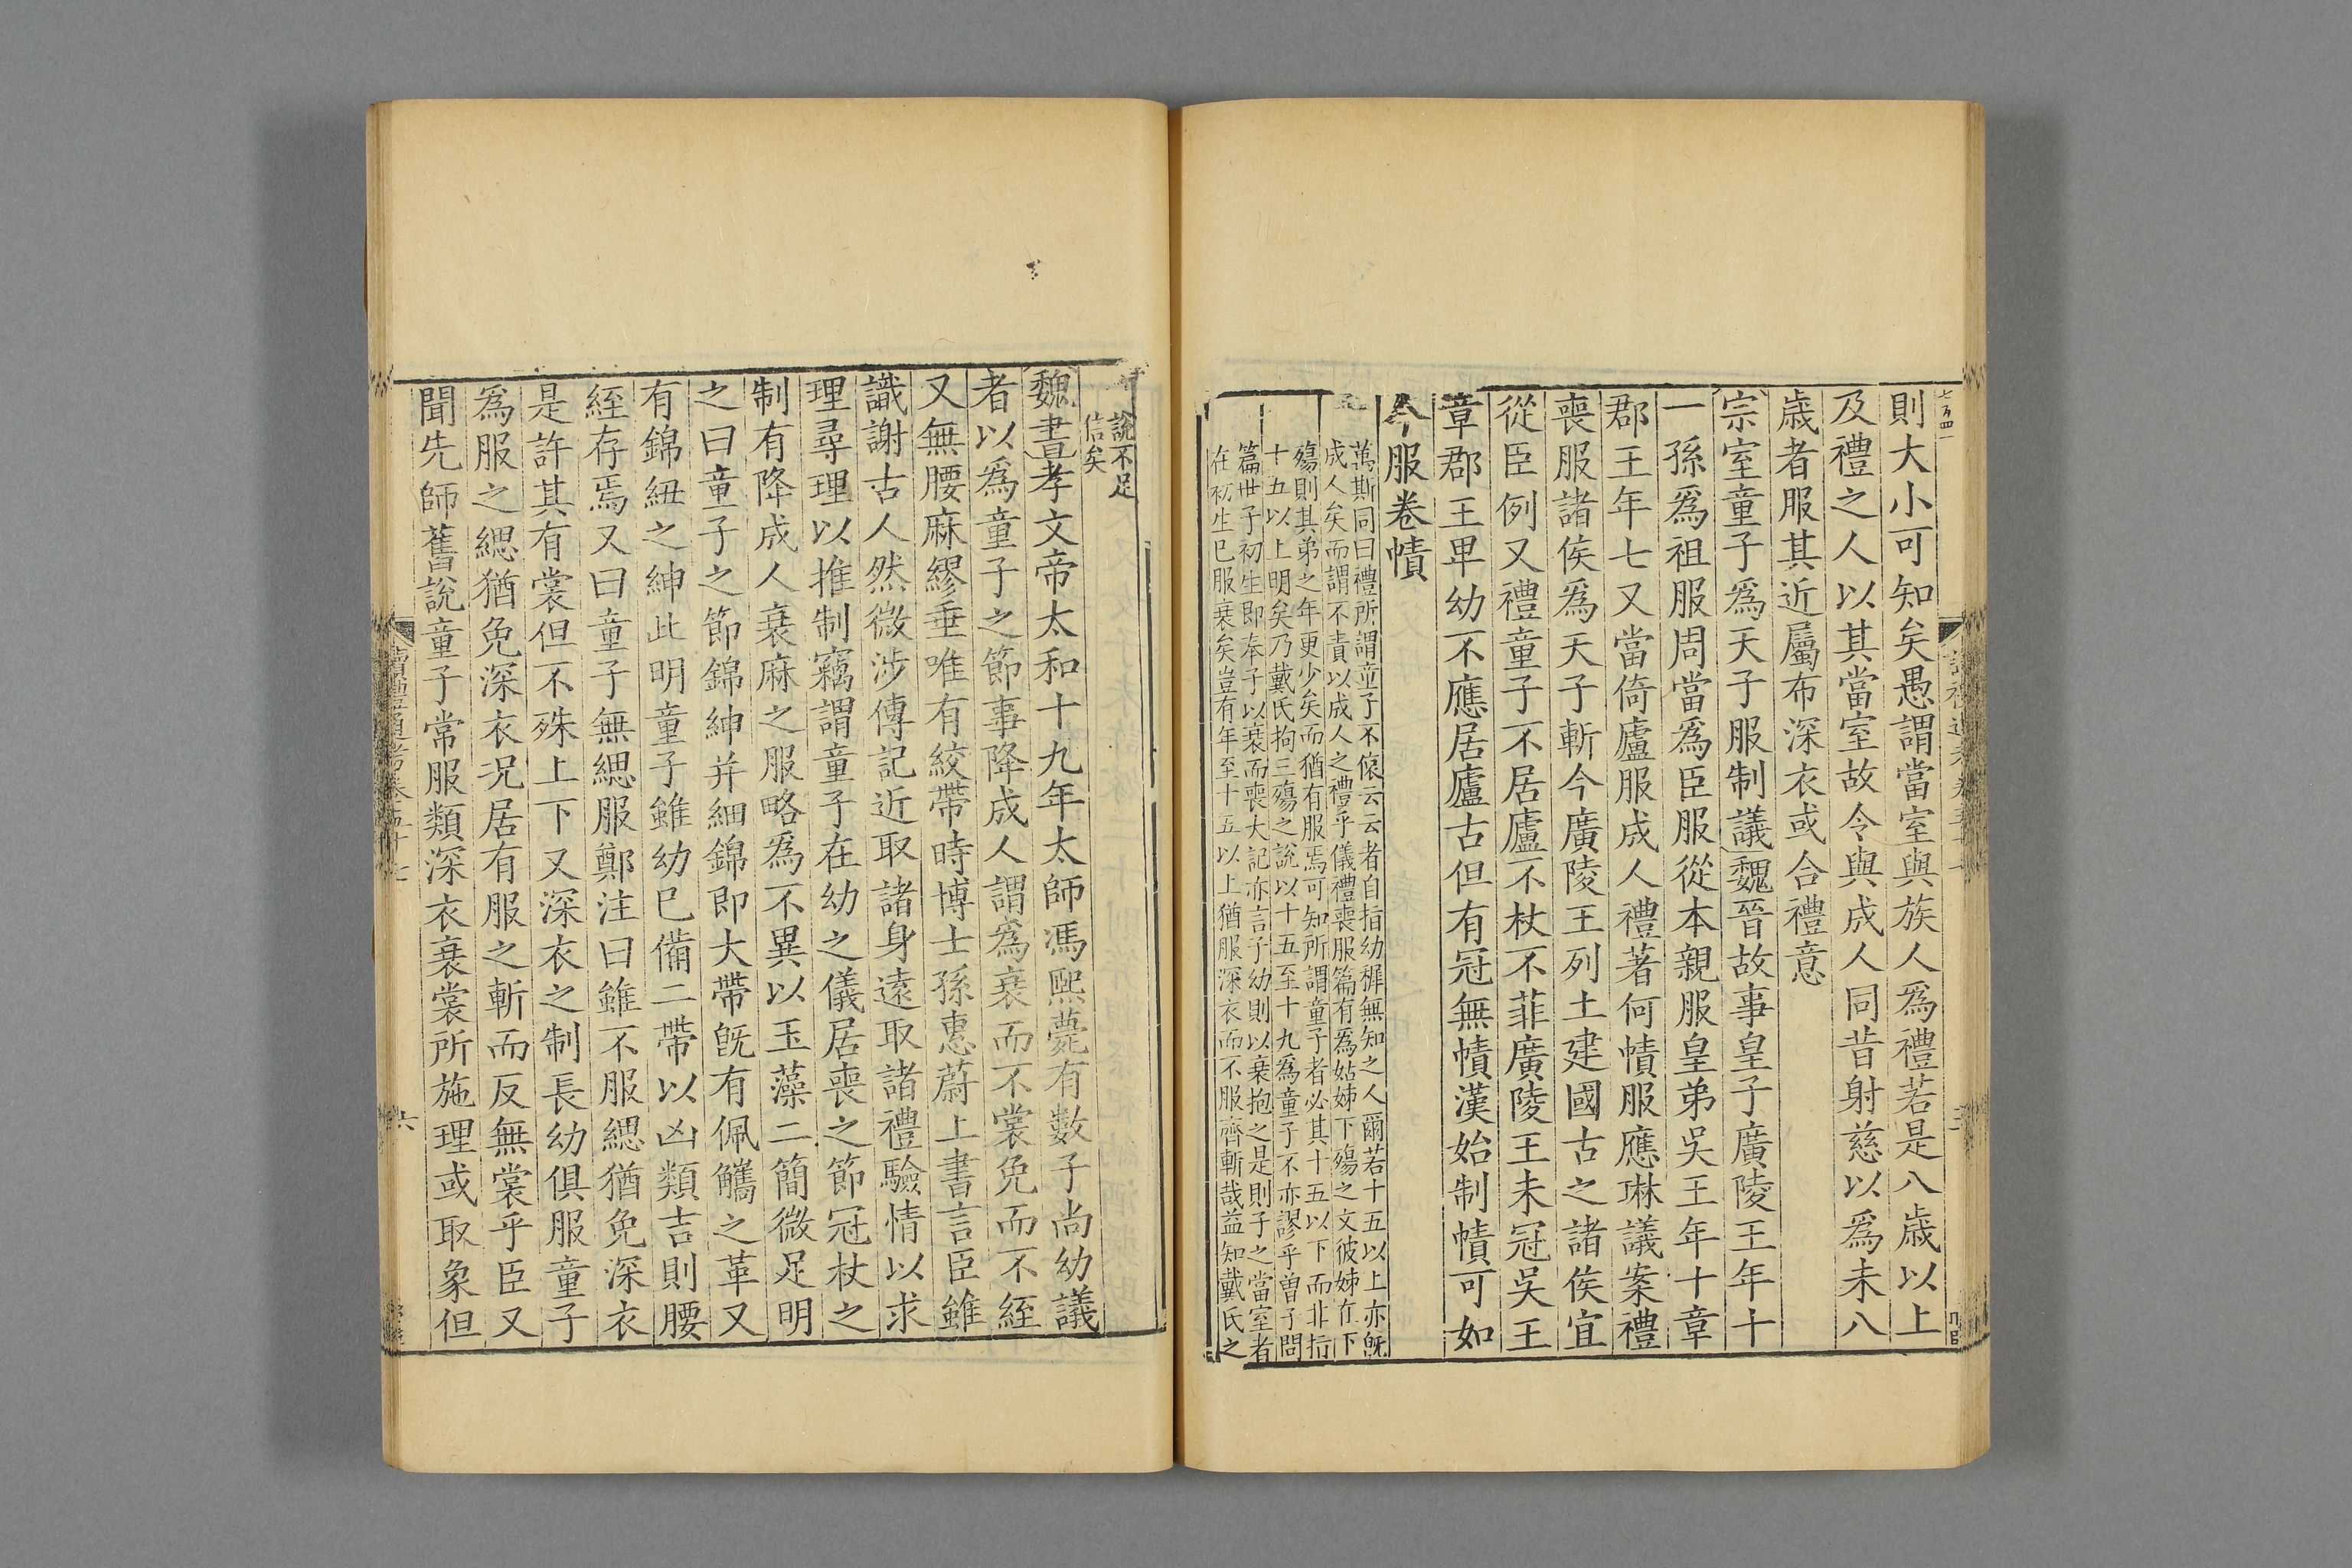 則大小可知矣愚謂當室與族人爲禮若是八歲以上
及禮之人以其當室故令與成人同昔射慈以爲未八
歲者服其近屬布深衣或合禮意
宗室童子爲天子服制議魏晉故事皇子廣陵王年十
一孫爲祖服周當爲臣服從本親服皇弟吳王年十章
郡王年七又當倚廬服成人禮著何幘服應琳議案禮
喪服諸侯爲天子斬今廣陵王列土建國古之諸侯宜
從臣例又禮童子不居廬不杖不菲廣陵王未冠吳王
章郡王卑幼不應居廬古但有冠無幘漢始制幘可如
今服卷幘
萬斯同曰禮所謂童子不偯云云者自指幼穉無知之人爾若十五以上亦旣
成人矣而謂不責以成人之禮乎儀禮喪服篇有爲姑姊下殤之文彼姊在下
殤則其弟之年更少矣而猶有服焉可知所謂童子者必其十五以下而非指
十五以上明矣乃戴氏拘三殤之說以十五至十九爲童子不亦謬乎曾子問
篇世子初生即奉子以衰而喪大記亦言子幼則以衰抱之是則子之當室者
在初生已服衰矣豈有年至十五以上猶服深衣而不服齊斬哉益知戴氏之
說不足
信矣
魏書孝文帝太和十九年太師馮熙薨有數子尚幼議
者以爲童子之節事降成人謂爲衰而不裳免而不絰
又無腰麻繆垂唯有絞帶時博士孫惠蔚上書言臣雖
識謝古人然微涉傳記近取諸身遠取諸禮驗情以求
理尋理以推制竊謂童子在幼之儀居喪之節冠杖之
制有降成人衰麻之服略爲不異以玉藻二簡微足明
之曰童子之節錦紳并細錦即大帶旣有佩觿之革又
有錦紐之紳此明童子雖幼已備二帶以凶類吉則腰
絰存焉又曰童子無緦服鄭注曰雖不服緦猶免深衣
是許其有裳但不殊上下又深衣之制長幼俱服童子
爲服之緦猶免深衣况居有服之斬而反無裳乎臣又
聞先師舊說童子常服類深衣衰裳所施理或取象但
讀禮通考卷五十七
六